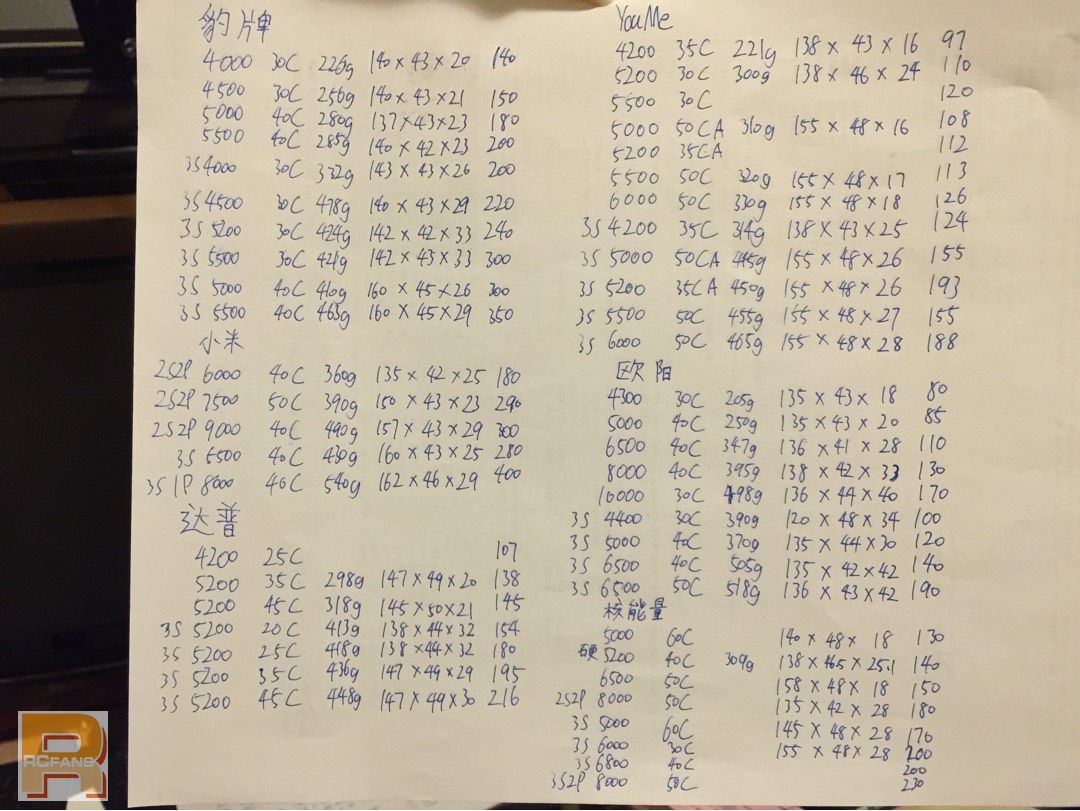 豹牌
4000 30C 226g 140×43×20 140
4500 30C 256g 140×43×21 150
5000 40C 280g 137×43×23 180
5500 40C 285g 140×42×23 200
3S 4000 30C 332g 143×43×26 200
3S 4500 30C 478g 140×43×29 220
3S 5200 30C 424g 142×42×33 240
3S 5500 30C 421g 142×43×33 300
3S 5000 40C 410g 160×45×26 300
3S 5500 40C 463g 160×45×29 350
小米
2S2P 6000 40C 360g 135×42×25 180
2S2P 7500 50C 390g 150×43×23 290
2S2P 9000 40C 490g 157×43×29 300
3S 5500 40C 430g 160×43×25 280
3S 1P 8000 40C 540g 162×46×29 400
达普
4200 25C 107
5200 35C 298g 147×49×20 138
5200 45C 318g 145×50×21 145
3S 5200 20C 413g 138×44×32 154
3S 5200 25C 418g 138×44×32 180
3S 5200 35C 436g 147×49×29 195
3S 5200 45C 448g 147×49×30 216
YouMe
4200 35C 221g 138×43×16 97
5200 30C 300g 138×46×24 110
5500 30C 120
5000 50CA 310g 155×48×16 108
5200 35CA 112
5500 50C 320g 155×48×17 113
6000 50C 330g 155×48×18 126
3S 4200 35C 314g 138×43×25 124
3S 5000 50CA 445g 155×48×26 155
3S 5200 35CA 450g 155×48×26 193
3S 5500 50C 455g 155×48×27 155
3S 6000 50C 465g 155×48×28 188
欧阳
4300 30C 205g 135×43×18 80
5000 40C 250g 135×43×20 85
6500 40C 347g 136×41×28 110
8000 40C 395g 138×42×33 130
10000 30C 498g 136×44×40 170
3S 4400 30C 390g 120×48×34 100
3S 5000 40C 370g 135×44×30 120
3S 6500 40C 505g 135×42×42 140
3S 6500 50C 518g 136×43×42 190
核能量
5000 60C 140×48×18 130
硬 5200 40C 309g 138×46.5×25.1 140
6500 50C 158×48×18 150
2S2P 8000 50C 135×42×28 180
3S 5000 60C 145×48×28 170
3S 6000 30C 155×48×28 200
3S 6800 40C 200
3S2P 8000 50C 230
RCFANS